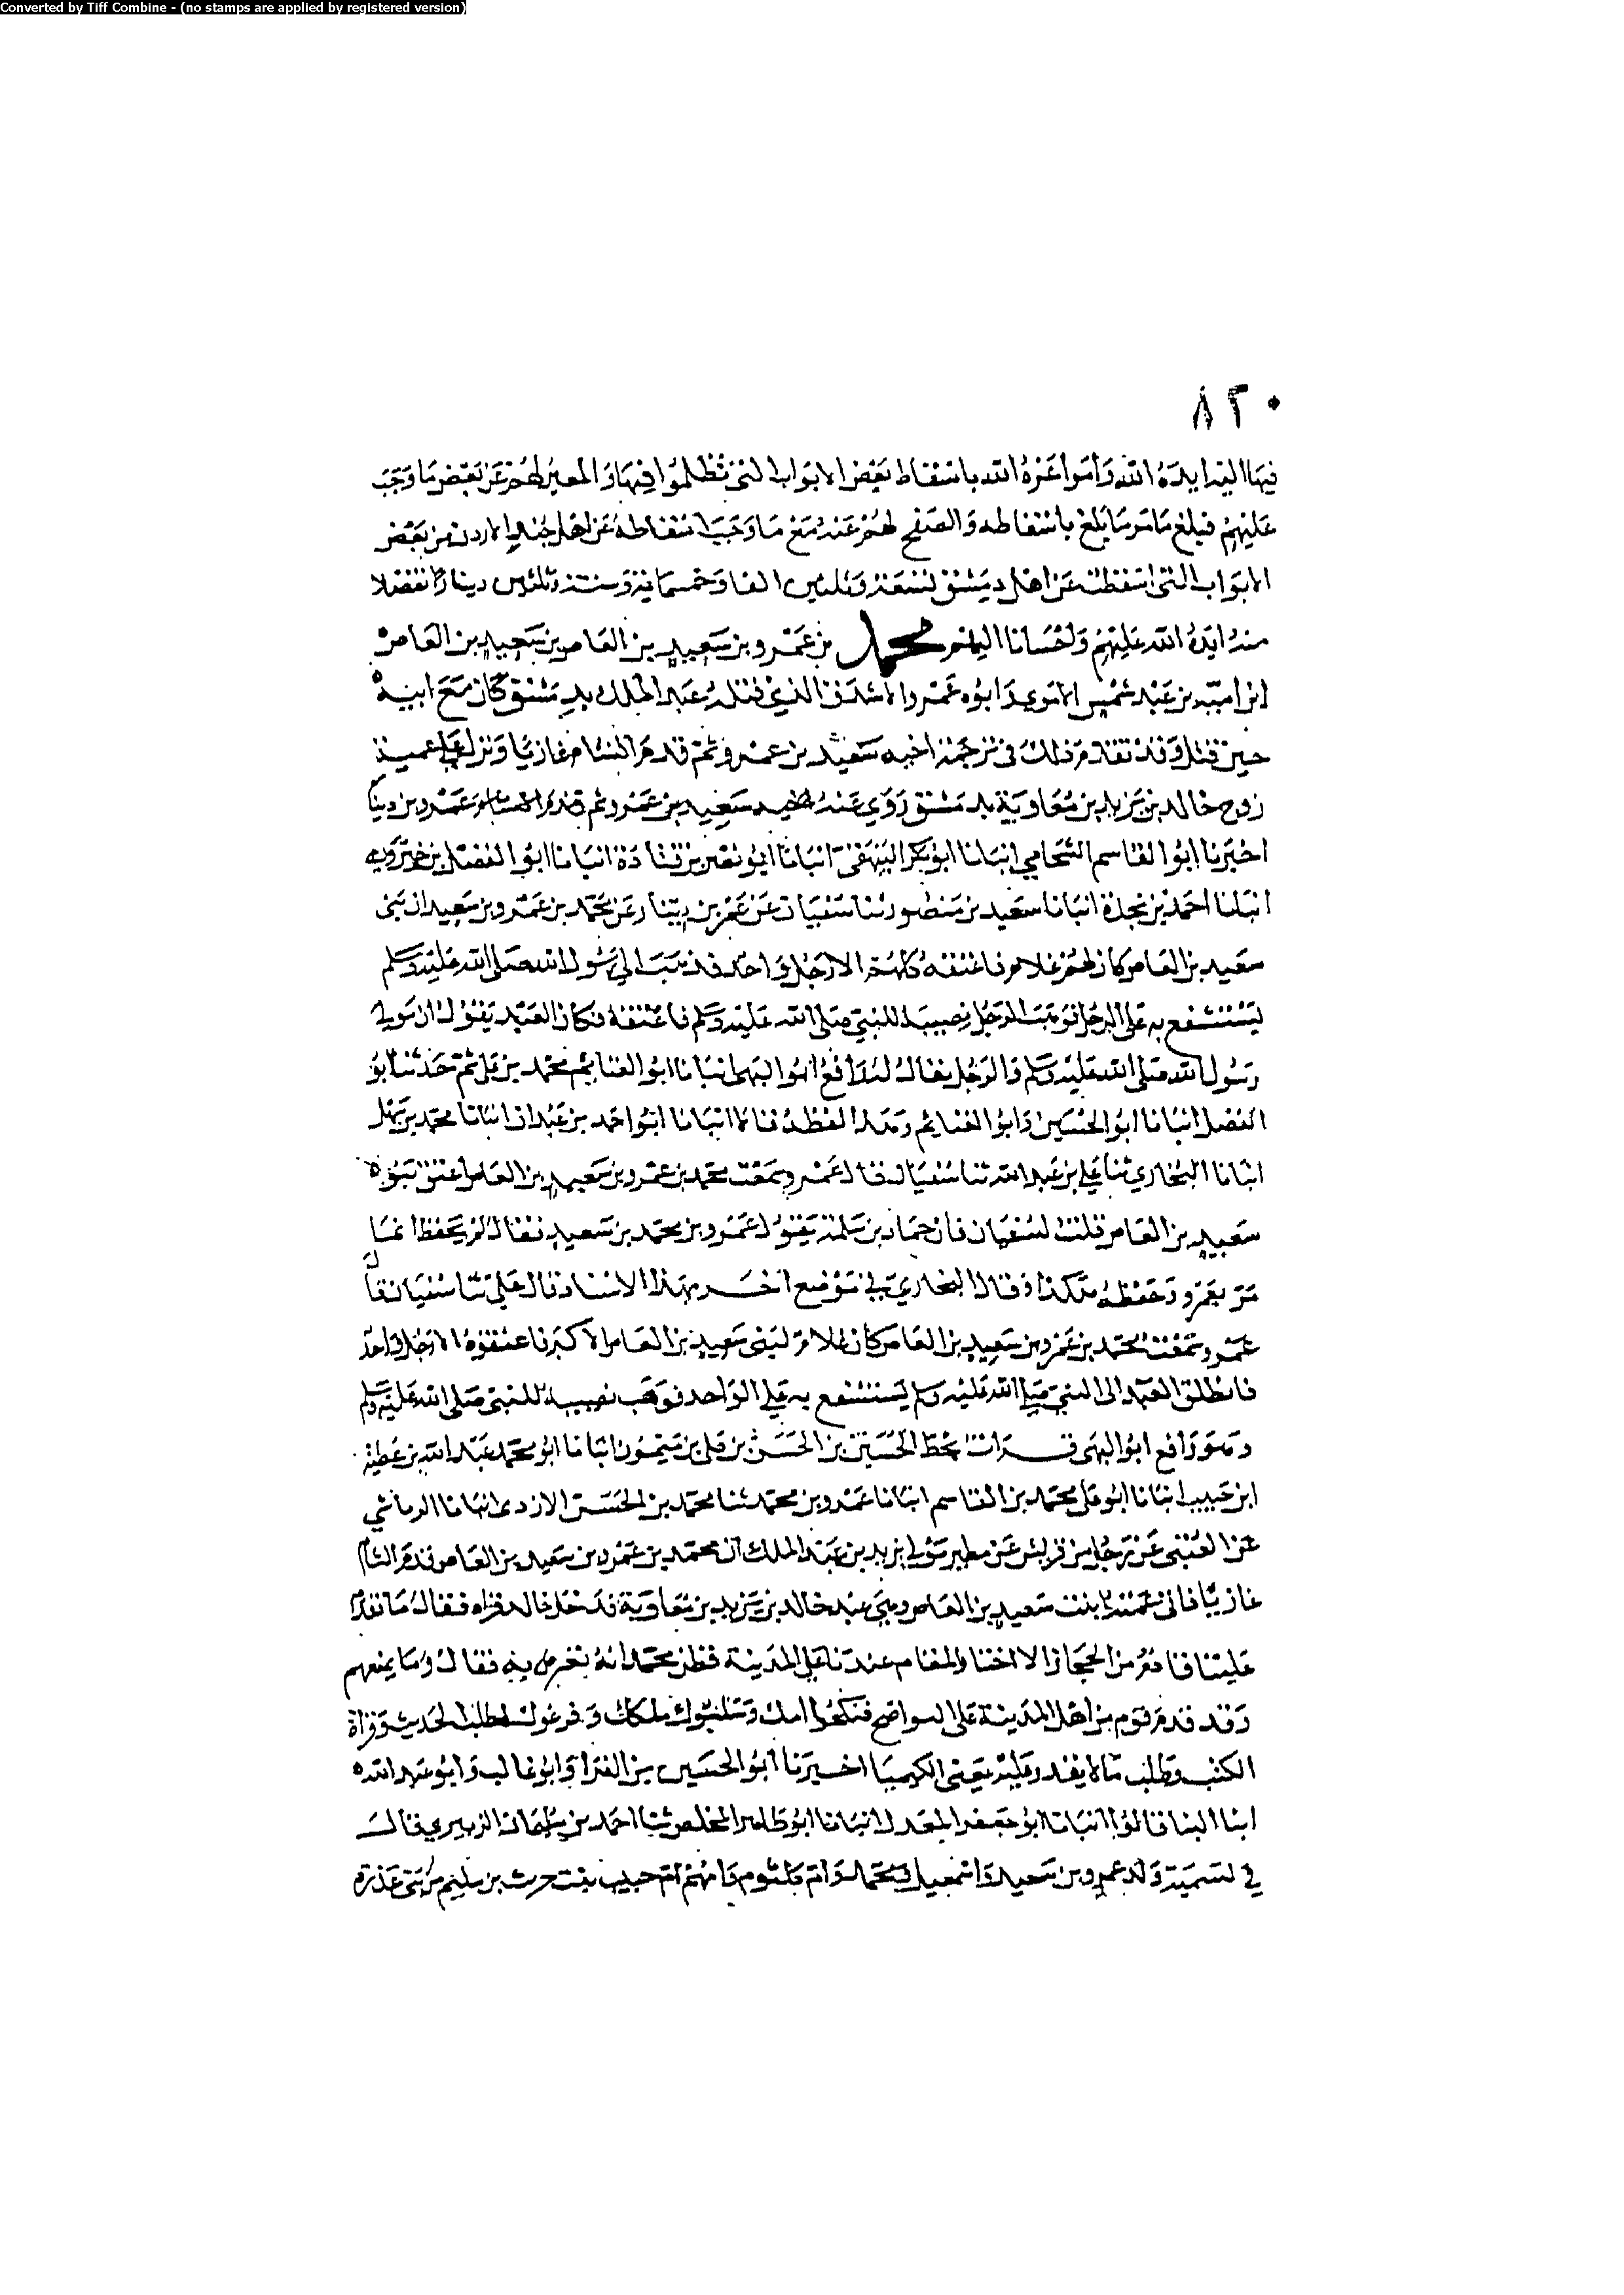 Converted by Tiff Combine - (no stamps are applied by registered version)
٨٢٠
فيها اليه ايده الله وامر اعزه الله باسقاط بعض الابواب التى تظلموا فيها و لهم عن بعض ما وجب
عليهم فبلغ ما مر ما بلغ باسقاطه والصفح لهم عنه مع ما وجب اسقاطه عن اهل جند الاردن من بعض
الابواب التى اسقطت عن اهل دمشق تسعة وثلثين الفا وخمسمائة وستة وثلثين دينارا تفضلا
منه ايده الله عليهم واحسانا اليهم محمد بن عمرو بن سعيد بن العاص بن سعيد بن العاص
ابن امية بن عبد شمس الاموى وابوه عمرو الاشدق الذى قتله عبد الملك بدمشق كان مع ابيه
حين قتل وقد تقدم ذلك فى ترجمة اخيه سعيد بن عمرو ثم قدم الشام غازيا ونزل على عمته
زوج خالد بن يزيد بن معاوية بدمشق روى عنه سعيد بن عمرو ثم قدم الشام وعمرو بن دينا
اخبرنا ابوا القاسم الشحامي انبانا ابو بكر البيهقى انبانا ابو نصر بن قتادة انبانا ابوا الفضل بن خميرويه
انبانا احمد بن نجدة انبانا سعيد بن منصور ثنا سفيان عن عمر بن دينار عن محمد بن عمرو بن سعيد ان بنى
سعيد بن العاص كان لهم غلام فاعتقه كلهم الا رجل واحد فذهب الى رسول الله صلى الله عليه وسلم
ليستشفع به على الرجل فوهب الرجل نصيبه للنبي صلى الله عليه وسلم فاعتقه فكان العبد يقول ان مولى
رسول الله صلى الله عليه وسلم والرجل يقال له رافع ابوا البهى انبانا ابوا الغنايم محمد بن على ثم حدثنا ابو
الفضل انبانا ابو الحسين وابوا الغنايم وهذا لفظه قالا انبانا ابوا احمد بن عبدان انبانا محمد بن سهل
انبانا البخاري ثنا علي بن عبد الله ثنا سفيان قال عمرو سمعت محمد بن عمرو بن سعيد بن العاص اعتق بنوه
سعيد بن العاص قلت لسفيان فان حماد بن سلمة يقول عمرو بن محمد بن سعيد فقال لم يحفظ انما
مر بعمرو وحفظه هكذا وقال البخاري في موضع اخر بهذا الاسناد قال علي ثنا سفيان قال
عمرو سمعت محمد بن عمرو بن سعيد بن العاص كان غلام لبنى سعيد بن العاص الاكبر فاعتقوه الا رجل واحد
فانطلق العبد الى النبي صلى الله عليه وسلم يستشفع به على الواحد فوهب نصيبه للنبى صلى الله عليه وسلم
وهو رافع ابوا البهى قرات بخط الحسين بن الحسن بن على بن ميمون انبانا ابو محمد عبد الله بن عطية
ابن حبيب انبانا ابو على محمد بن القاسم انبانا عمرو بن محمد ثنا محمد بن الحسن الازدى انبانا الرياشي
عن العتبى عن رجل من قريش عن مطير مولى يزيد بن عبد الملك ان محمد بن عمرو بن سعيد بن العاص قدم الشام
غازيا فاتى عمته بنت سعيد بن العاص وهي عند خالد بن يزيد بن معاوية فدخل خالد فراه فقال ما يقدم
علينا قادم من الحجاز الا اختا المقام عندنا على المدينة فظن محمد انه يعرض به فقال وما يمنعهم
وقد قدم قوم من اهل المدينة على النواضح فنكحوا امك وسلبوك ملكك وفرغوك لطلب الحديث وقراة
الكتب وطلب ما لا يقدر عليه يعنى الكيميا اخبرنا ابوا الحسين بن الفرا وابو غالب وابو عبد الله
ابنا البنا قالوا انبانا ابو جعفر المعدل انبانا ابو طاهر المخلص ثنا احمد بن سليمان الزبيري قال
في تسمية ولد عمرو بن سعيد واسمعيل ومحمد وام كلثوم وامهم ام حبيب بنت حريث بن سليم من بنى عذرة